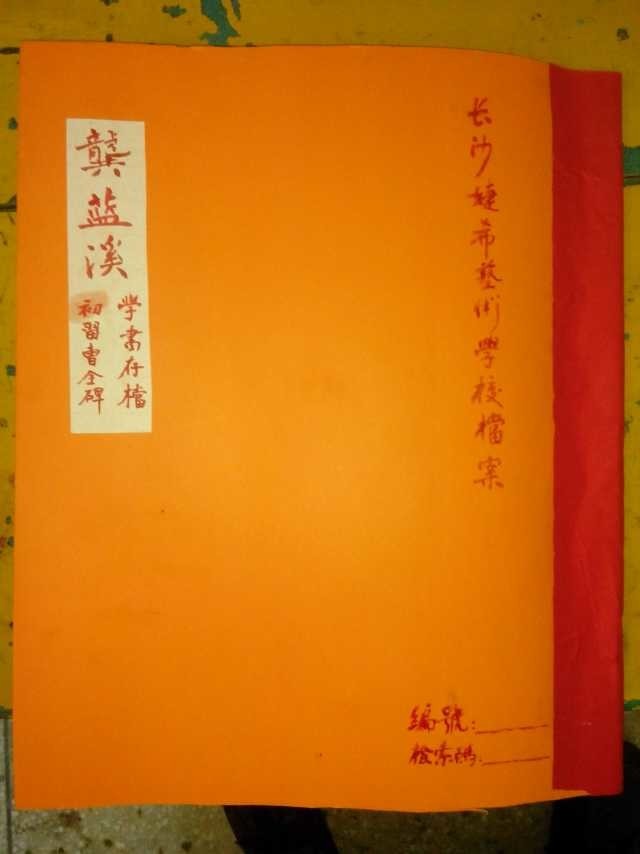 长沙婕希藝術學校檔案
龔蓝溪
学書存檔
初習曹全碑
編號:
檢索碼: